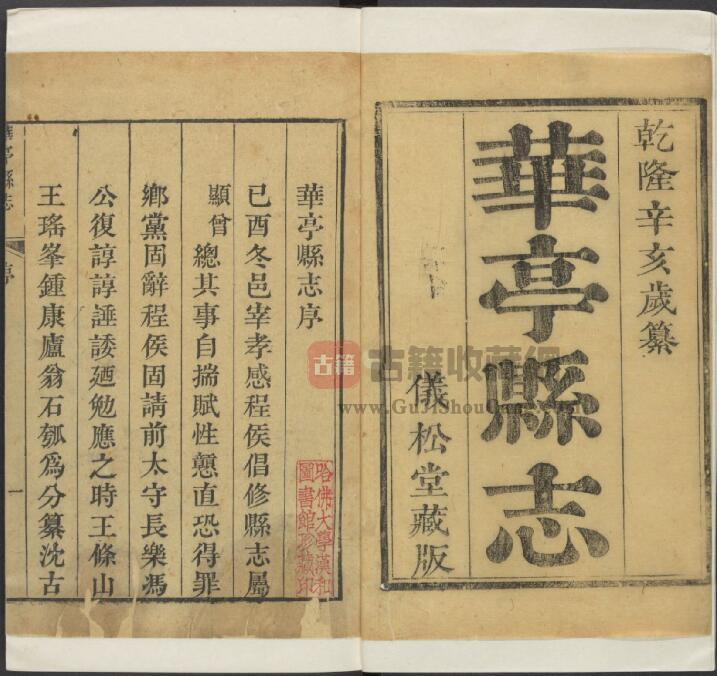 乾隆辛亥歲纂
華亭縣志
儀松堂藏版
華亭縣志序
己酉冬邑宰孝感程侯倡修縣志屬
顯曾總其事自揣賦性戇直恐得罪
鄉黨固辭程侯固請前太守長樂馮
公復諄諄諈諉廼勉應之時王條山
王瑤峯鍾康廬翁石瓠爲分纂沈古
華亭縣志
序
一
哈佛大學漢和
圖書館珍藏印
古籍
古籍收藏網